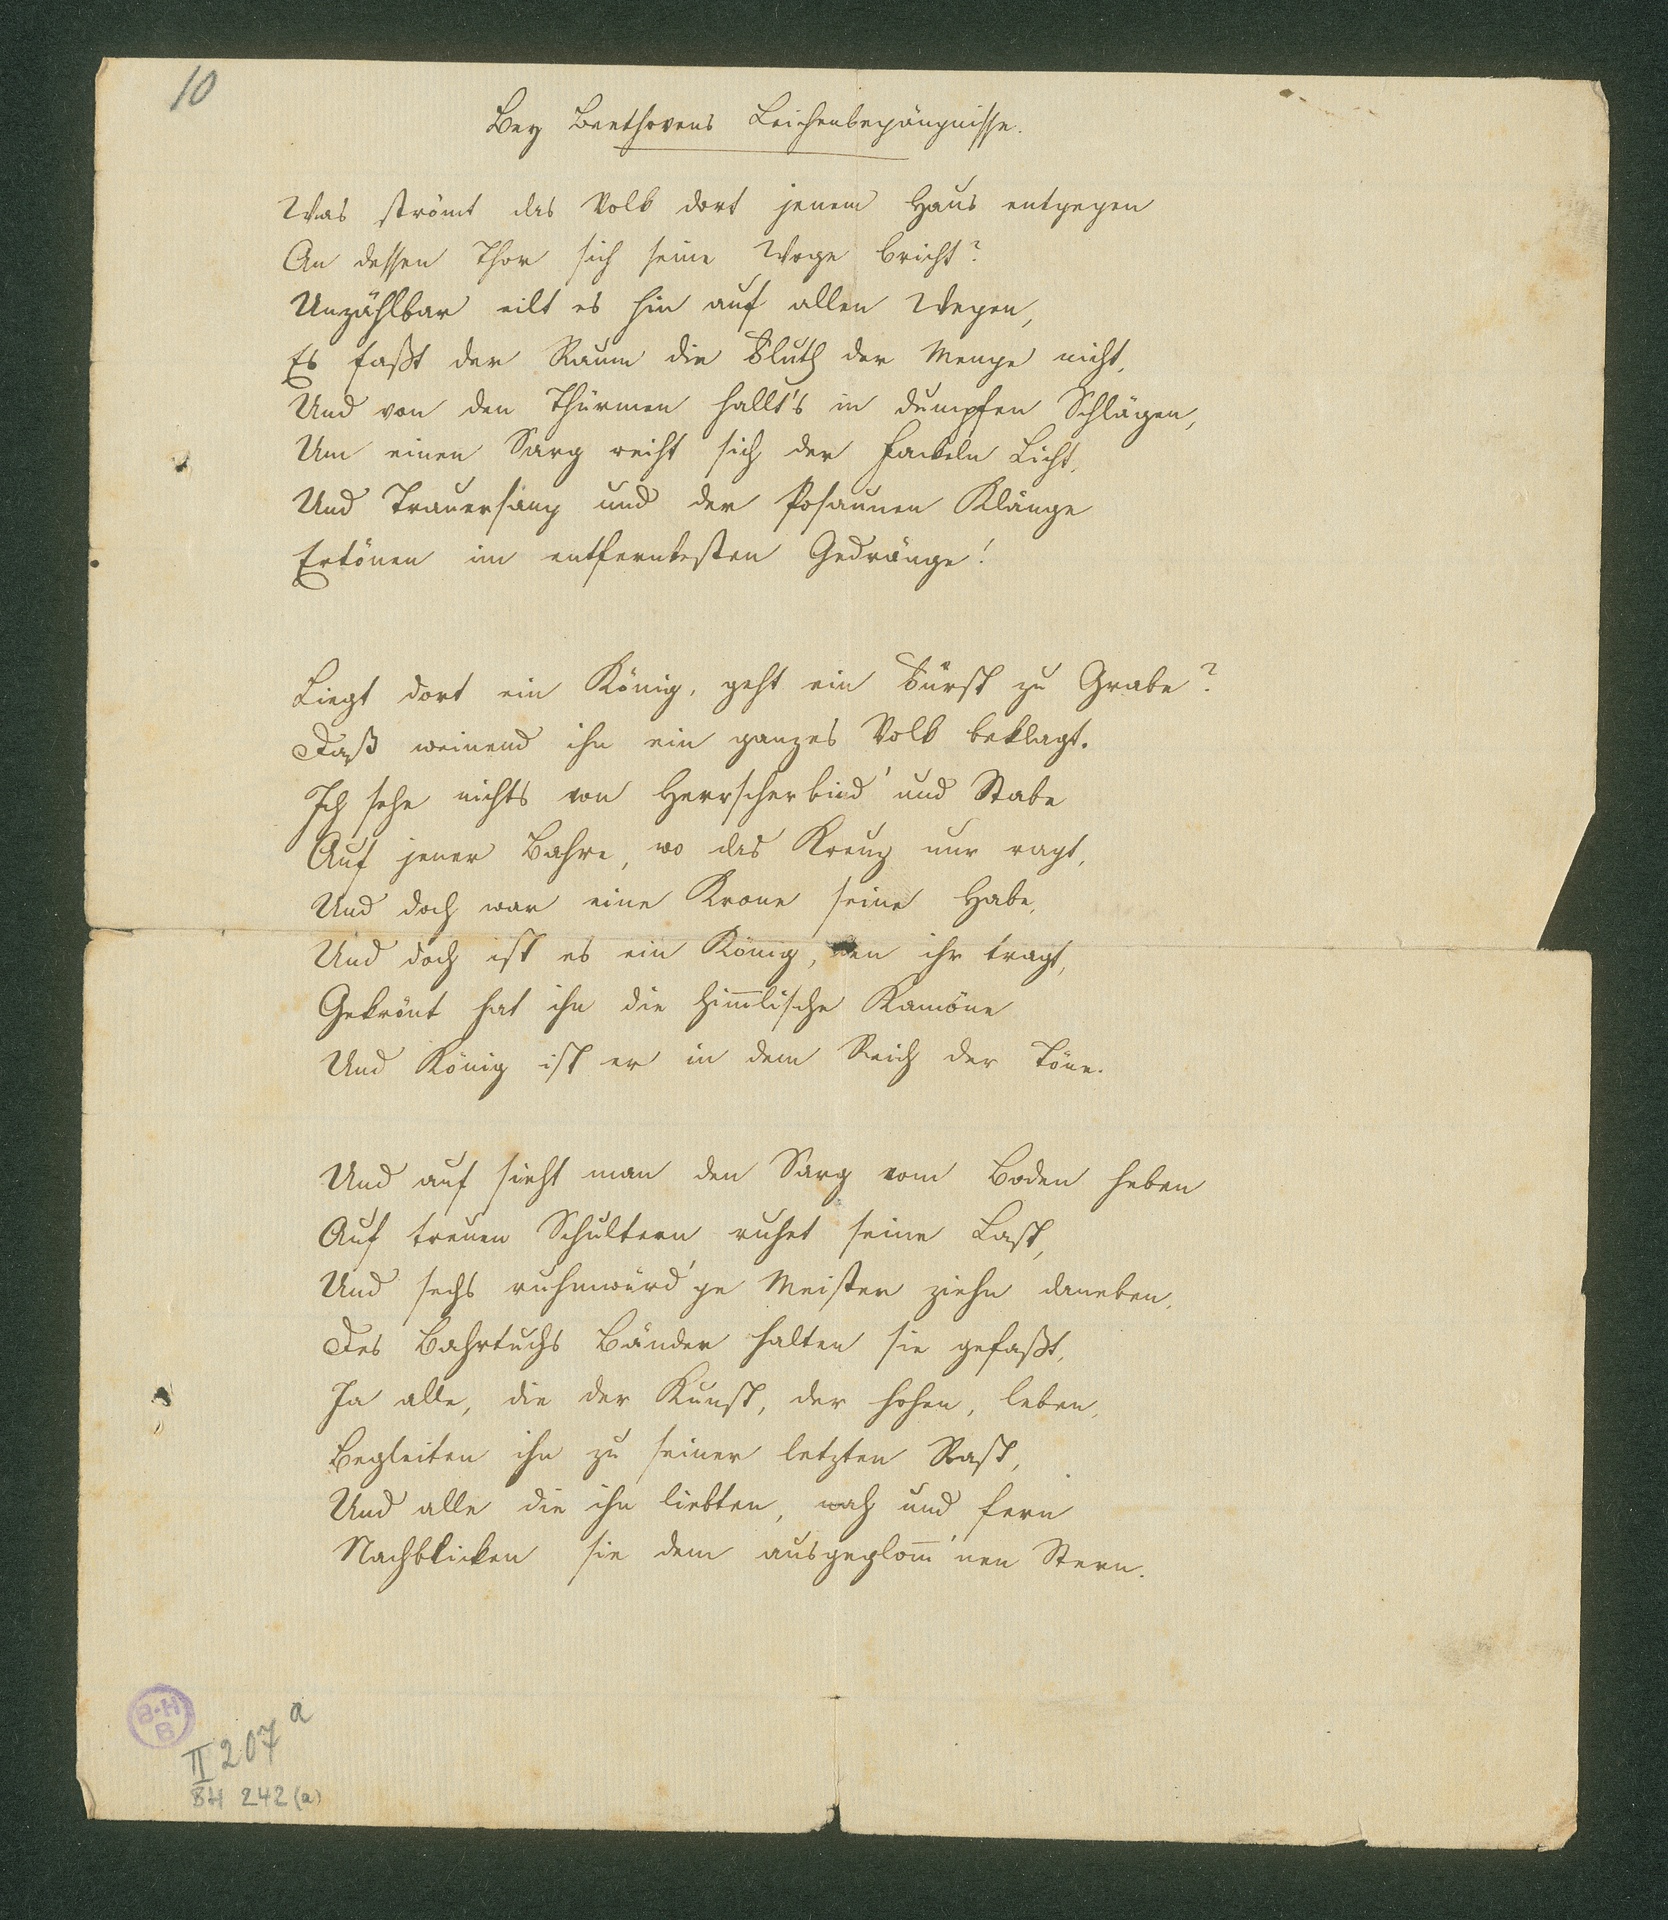 10
Bey Beethovens Leichenbegängnisse.
Was strömt das Volk dort jenem Haus entgegen
An dessen Thor sich seine Woge bricht?
Unzählbar eilt es hin auf allen Wegen,
Es faßt der Raum die Fluth der Menge nicht,
Und von den Thürmen hallt's in dumpfen Schlägen,
Um einen Sarg reiht sich der Fackeln Licht,
Und Trauersang und der Posaunen Klänge
Ertönen im entferntesten Gedränge!
Liegt dort ein König, geht ein Fürst zu Grabe?
Daß weinend ihn ein ganzes Volk beklagt.
Ich sehe nichts von Herrscherbind' und Stabe
Auf jener Bahre, wo das Kreuz nur ragt,
Und doch war eine Krone seine Habe,
Und doch ist es ein König, den ihr tragt,
Gekrönt hat ihn die him̅lische Kamöne
Und König ist er in dem Reich der Töne.
Und auf sieht man den Sarg vom Boden heben
Auf treuen Schultern ruhet seine Last,
Und sechs ruhmwürd'ge Meister ziehn daneben,
Des Bahrtuchs Bänder halten sie gefaßt,
Ja alle, die der Kunst, der hohen, leben,
Begleiten ihn zu seiner letzten Rast,
Und alle die ihn liebten, nah und fern
Nachblicken sie dem ausgeglom̅'nen Stern.
B-H
B
II 207 a
BH 242 (a)